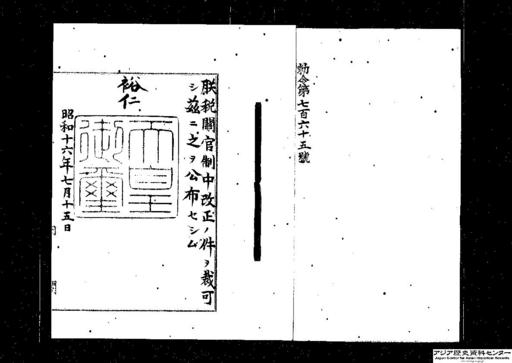 勅令第七百六十五號
朕税關官制中改正ノ件ヲ裁可
シ茲ニ之ヲ公布セシム
裕仁
天皇
御璽
昭和十六年七月十五日
アジア歴史資料センター
Japan Center for Asian Historical Records